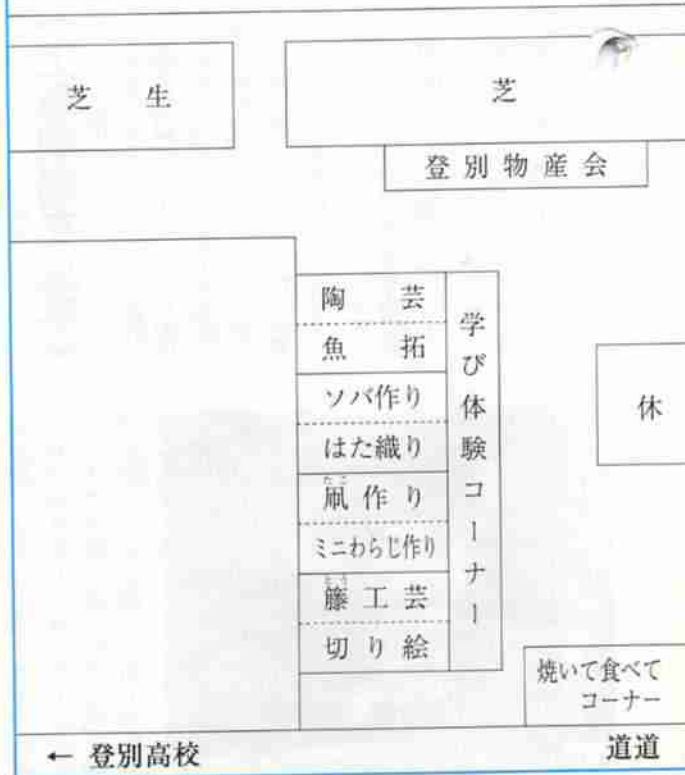 芝生
芝
登別物産会
陶芸
魚拓
ソバ作り
はた織り
凧作り
ミニわらじ作り
籐工芸
切り絵
学び体験コーナー
休
焼いて食べて
コーナー
← 登別高校
道道